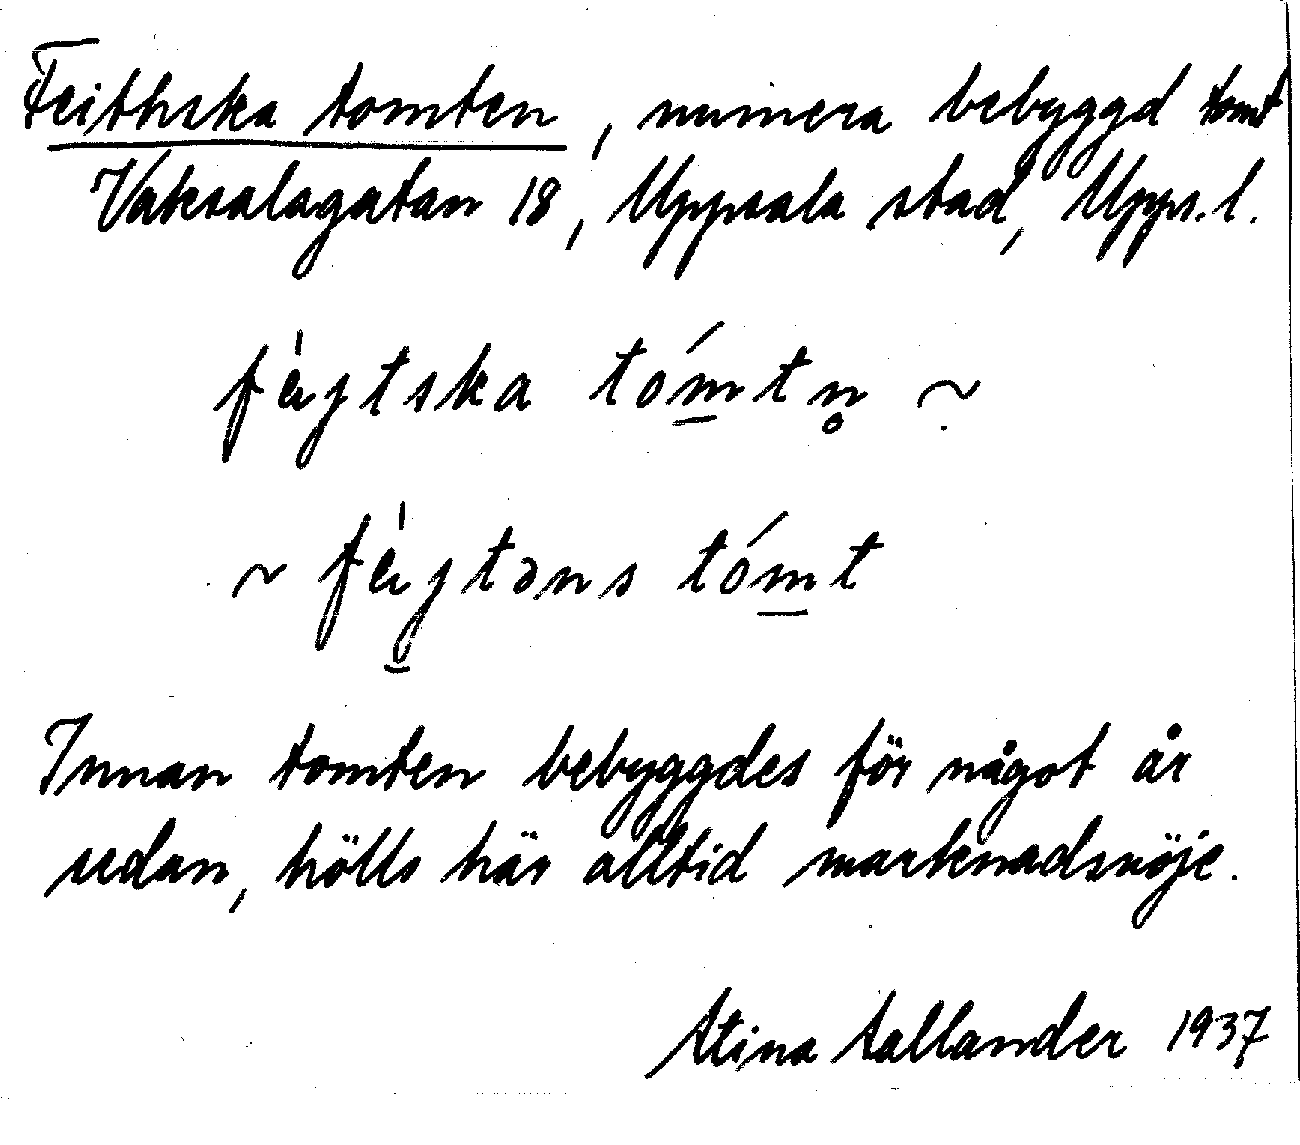 Feithska tomten, numera bebyggd tomt
Vaksalagatan 18, Uppsala stad, Upps. l.
fèjtska tómtn̥ ~
~ fèjtəns tómt
Innan tomten bebyggdes för något år
sedan, hölls här alltid marknadsnöje.
Stina Sallander 1937